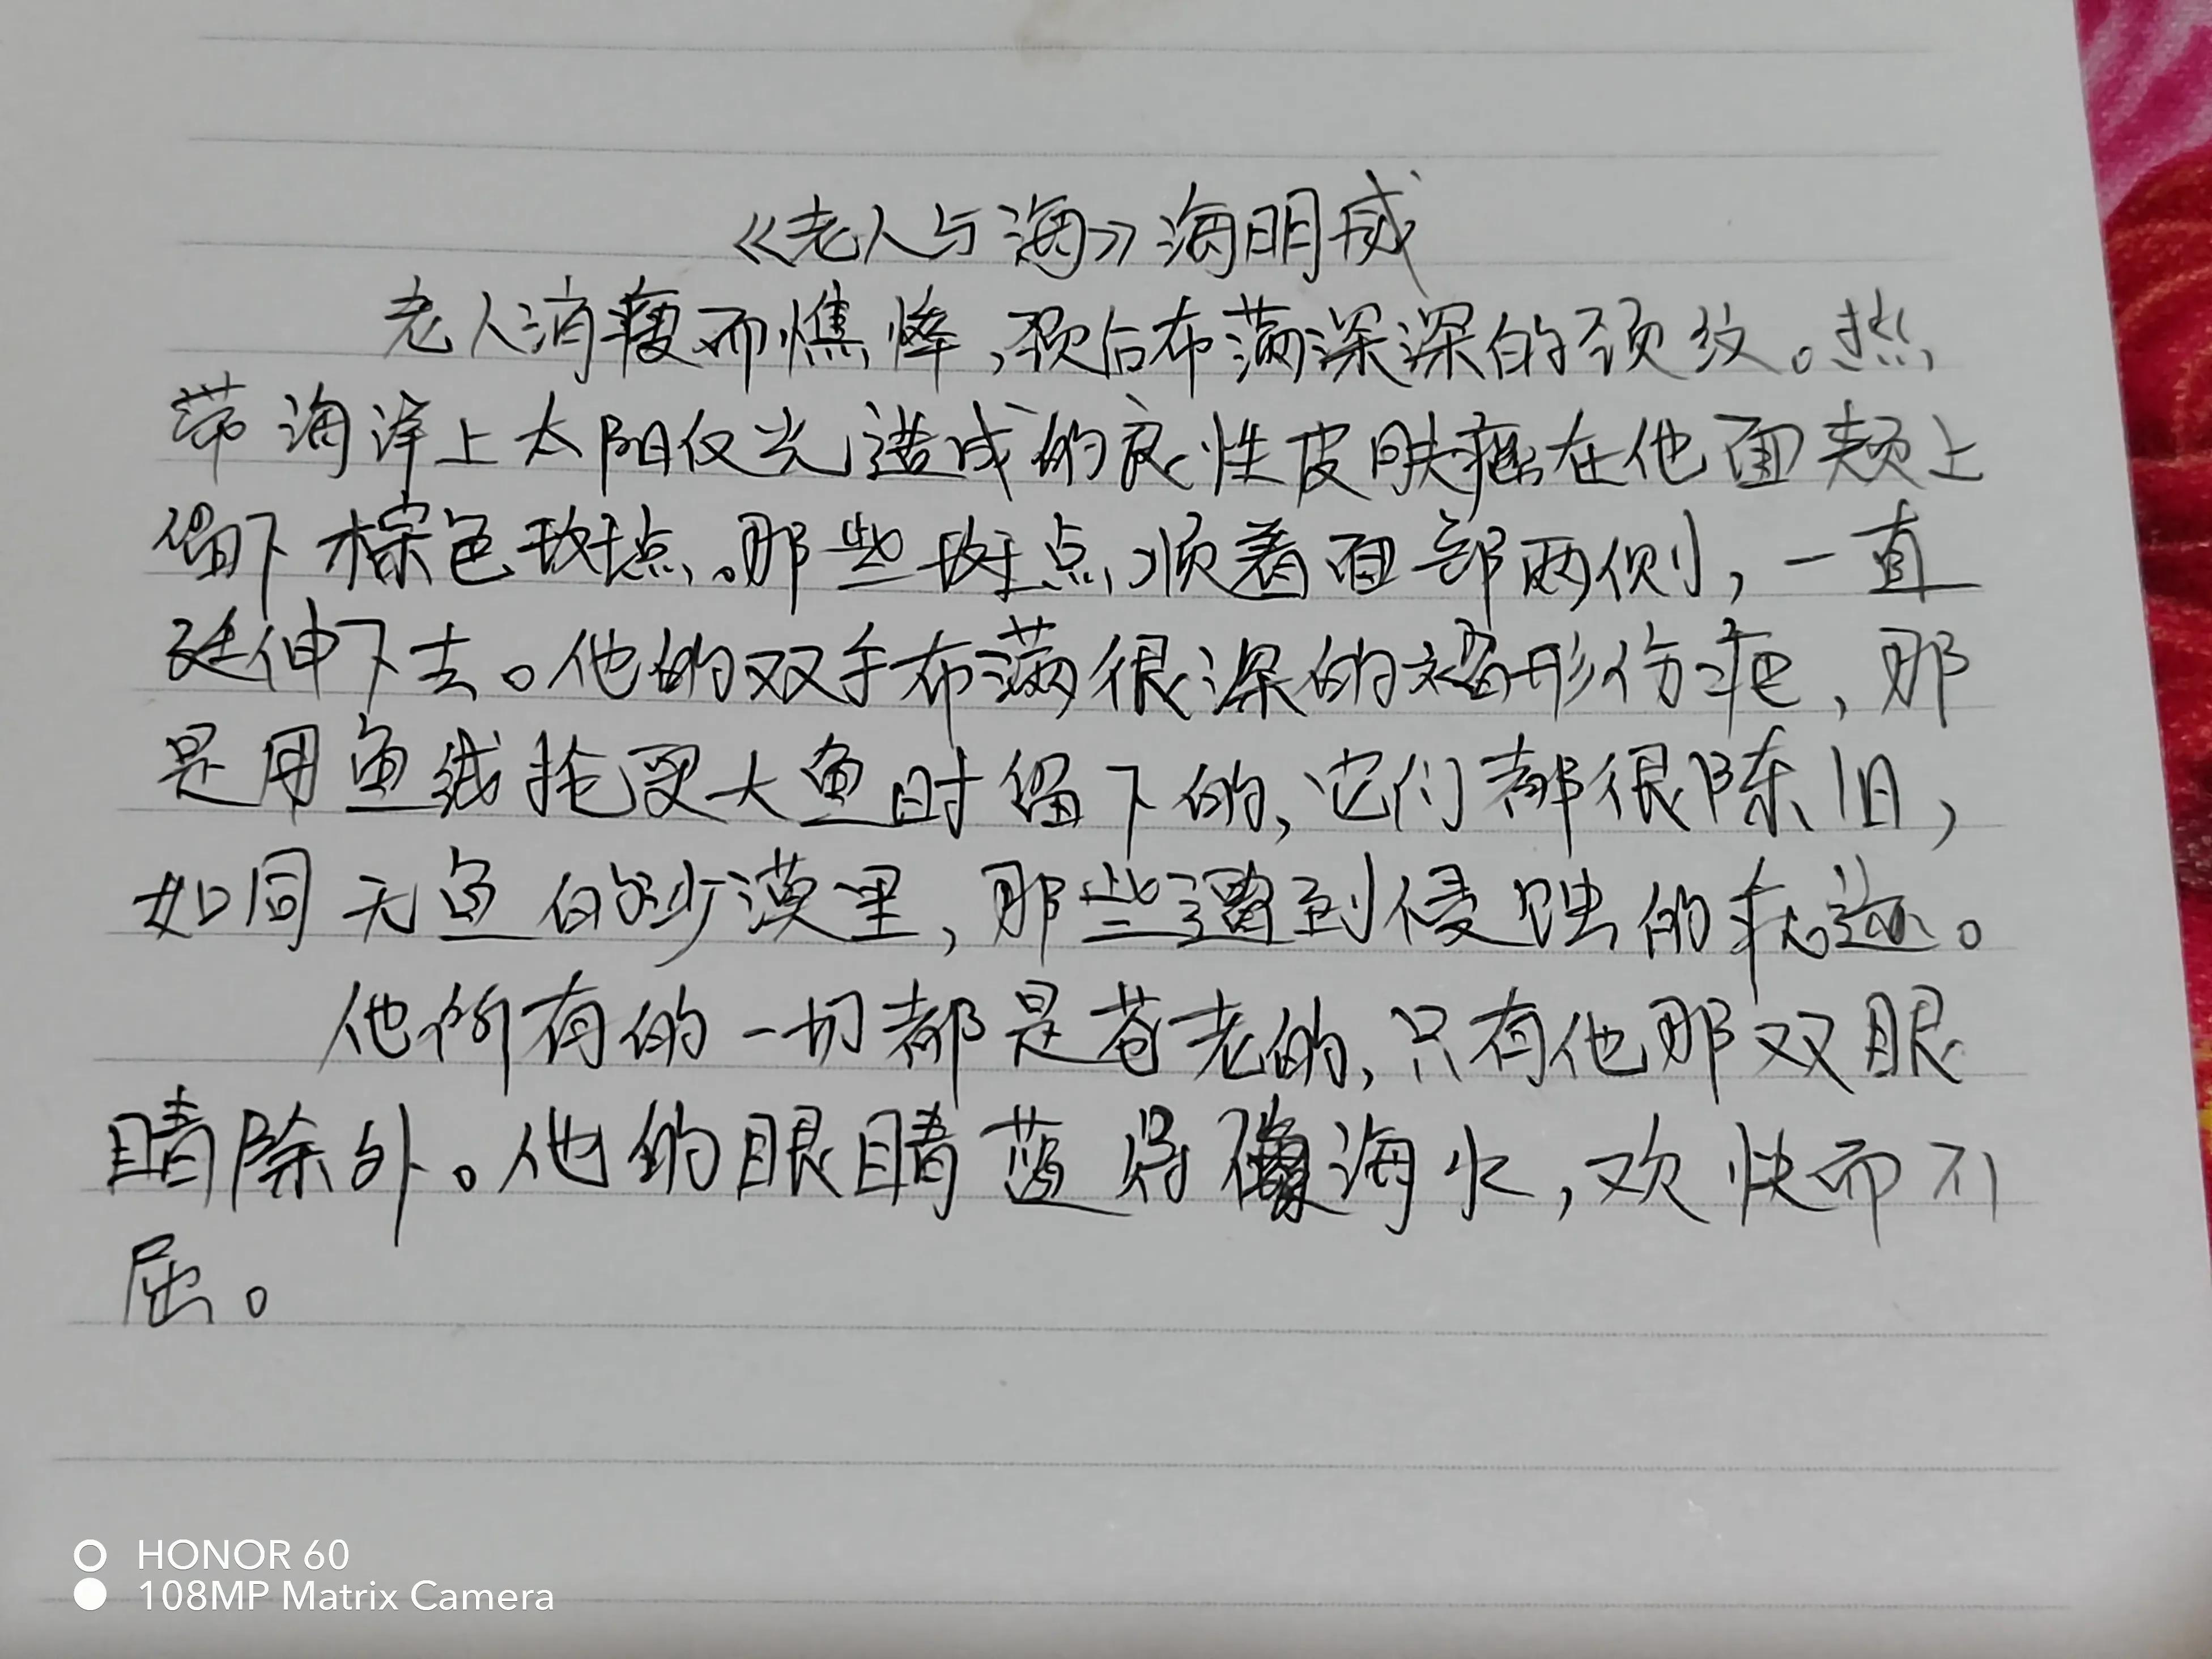 《老人与海》海明威
老人消瘦而憔悴，颈后布满深深的颈纹。热
带海洋上太阳反光造成的良性皮肤瘤在他面颊上
留下棕色斑点。那些斑点顺着面部两侧，一直
延伸下去。他的双手布满很深的褶形伤疤，那
是用鱼线拖曳大鱼时留下的，它们都很陈旧，
如同无鱼的沙漠里，那些遭到侵蚀的痕迹。
他所有的一切都是苍老的，只有他那双眼
睛除外。他的眼睛蓝得像海水，欢快而不
屈。
HONOR 60
108MP Matrix Camera